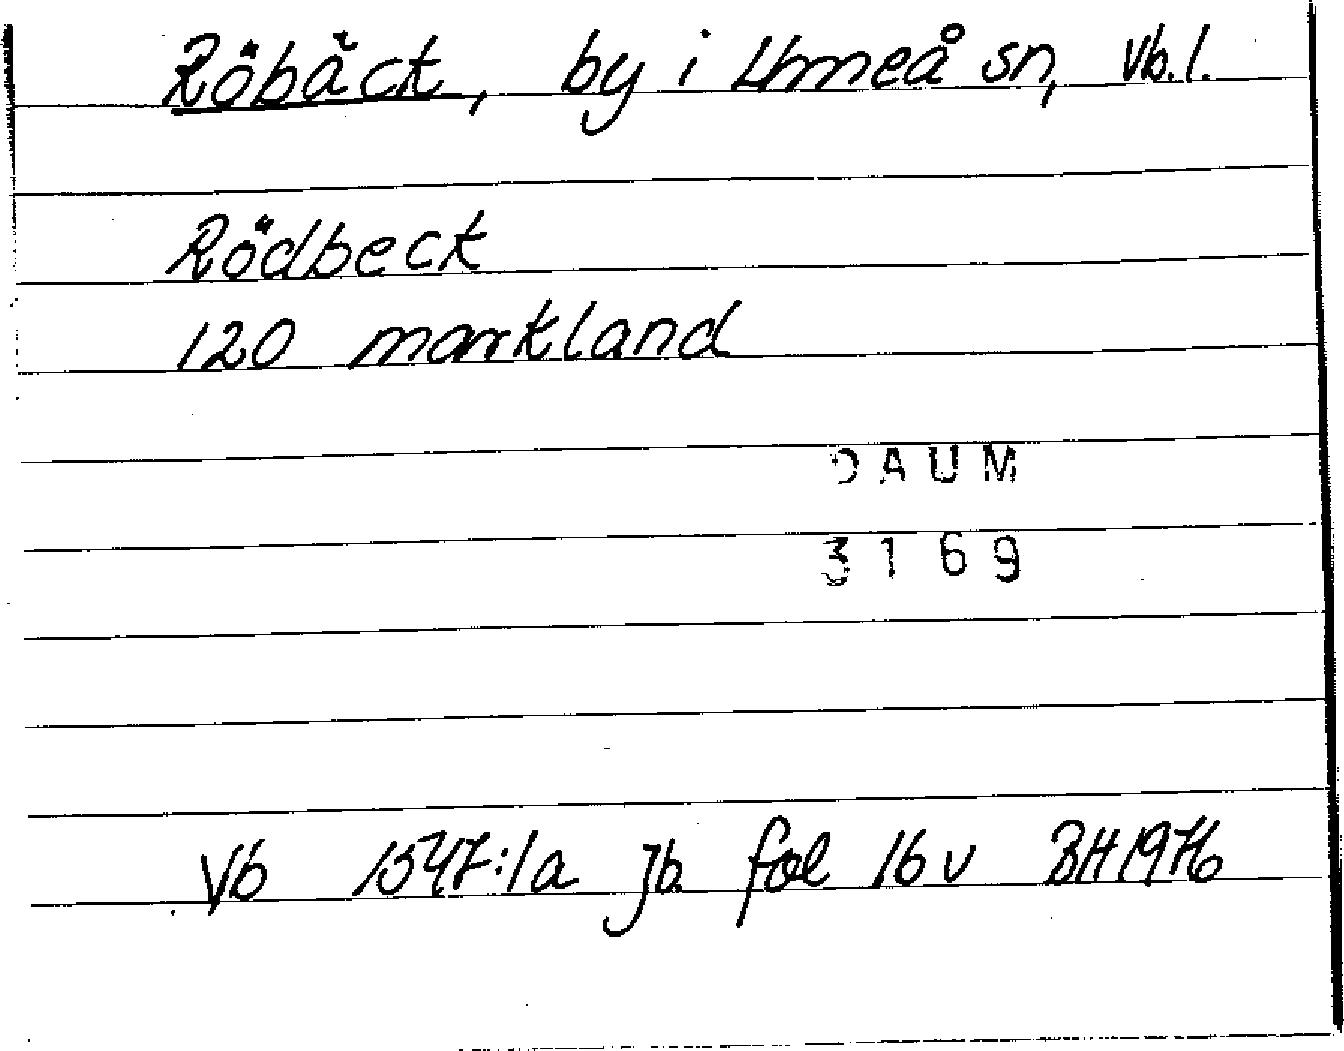 Röbäck, by i Umeå sn, Vb.l.
Rödbeck
120 markland
DAUM
3169
Vb 1547:1a Jb. fol 16 v BH 1976